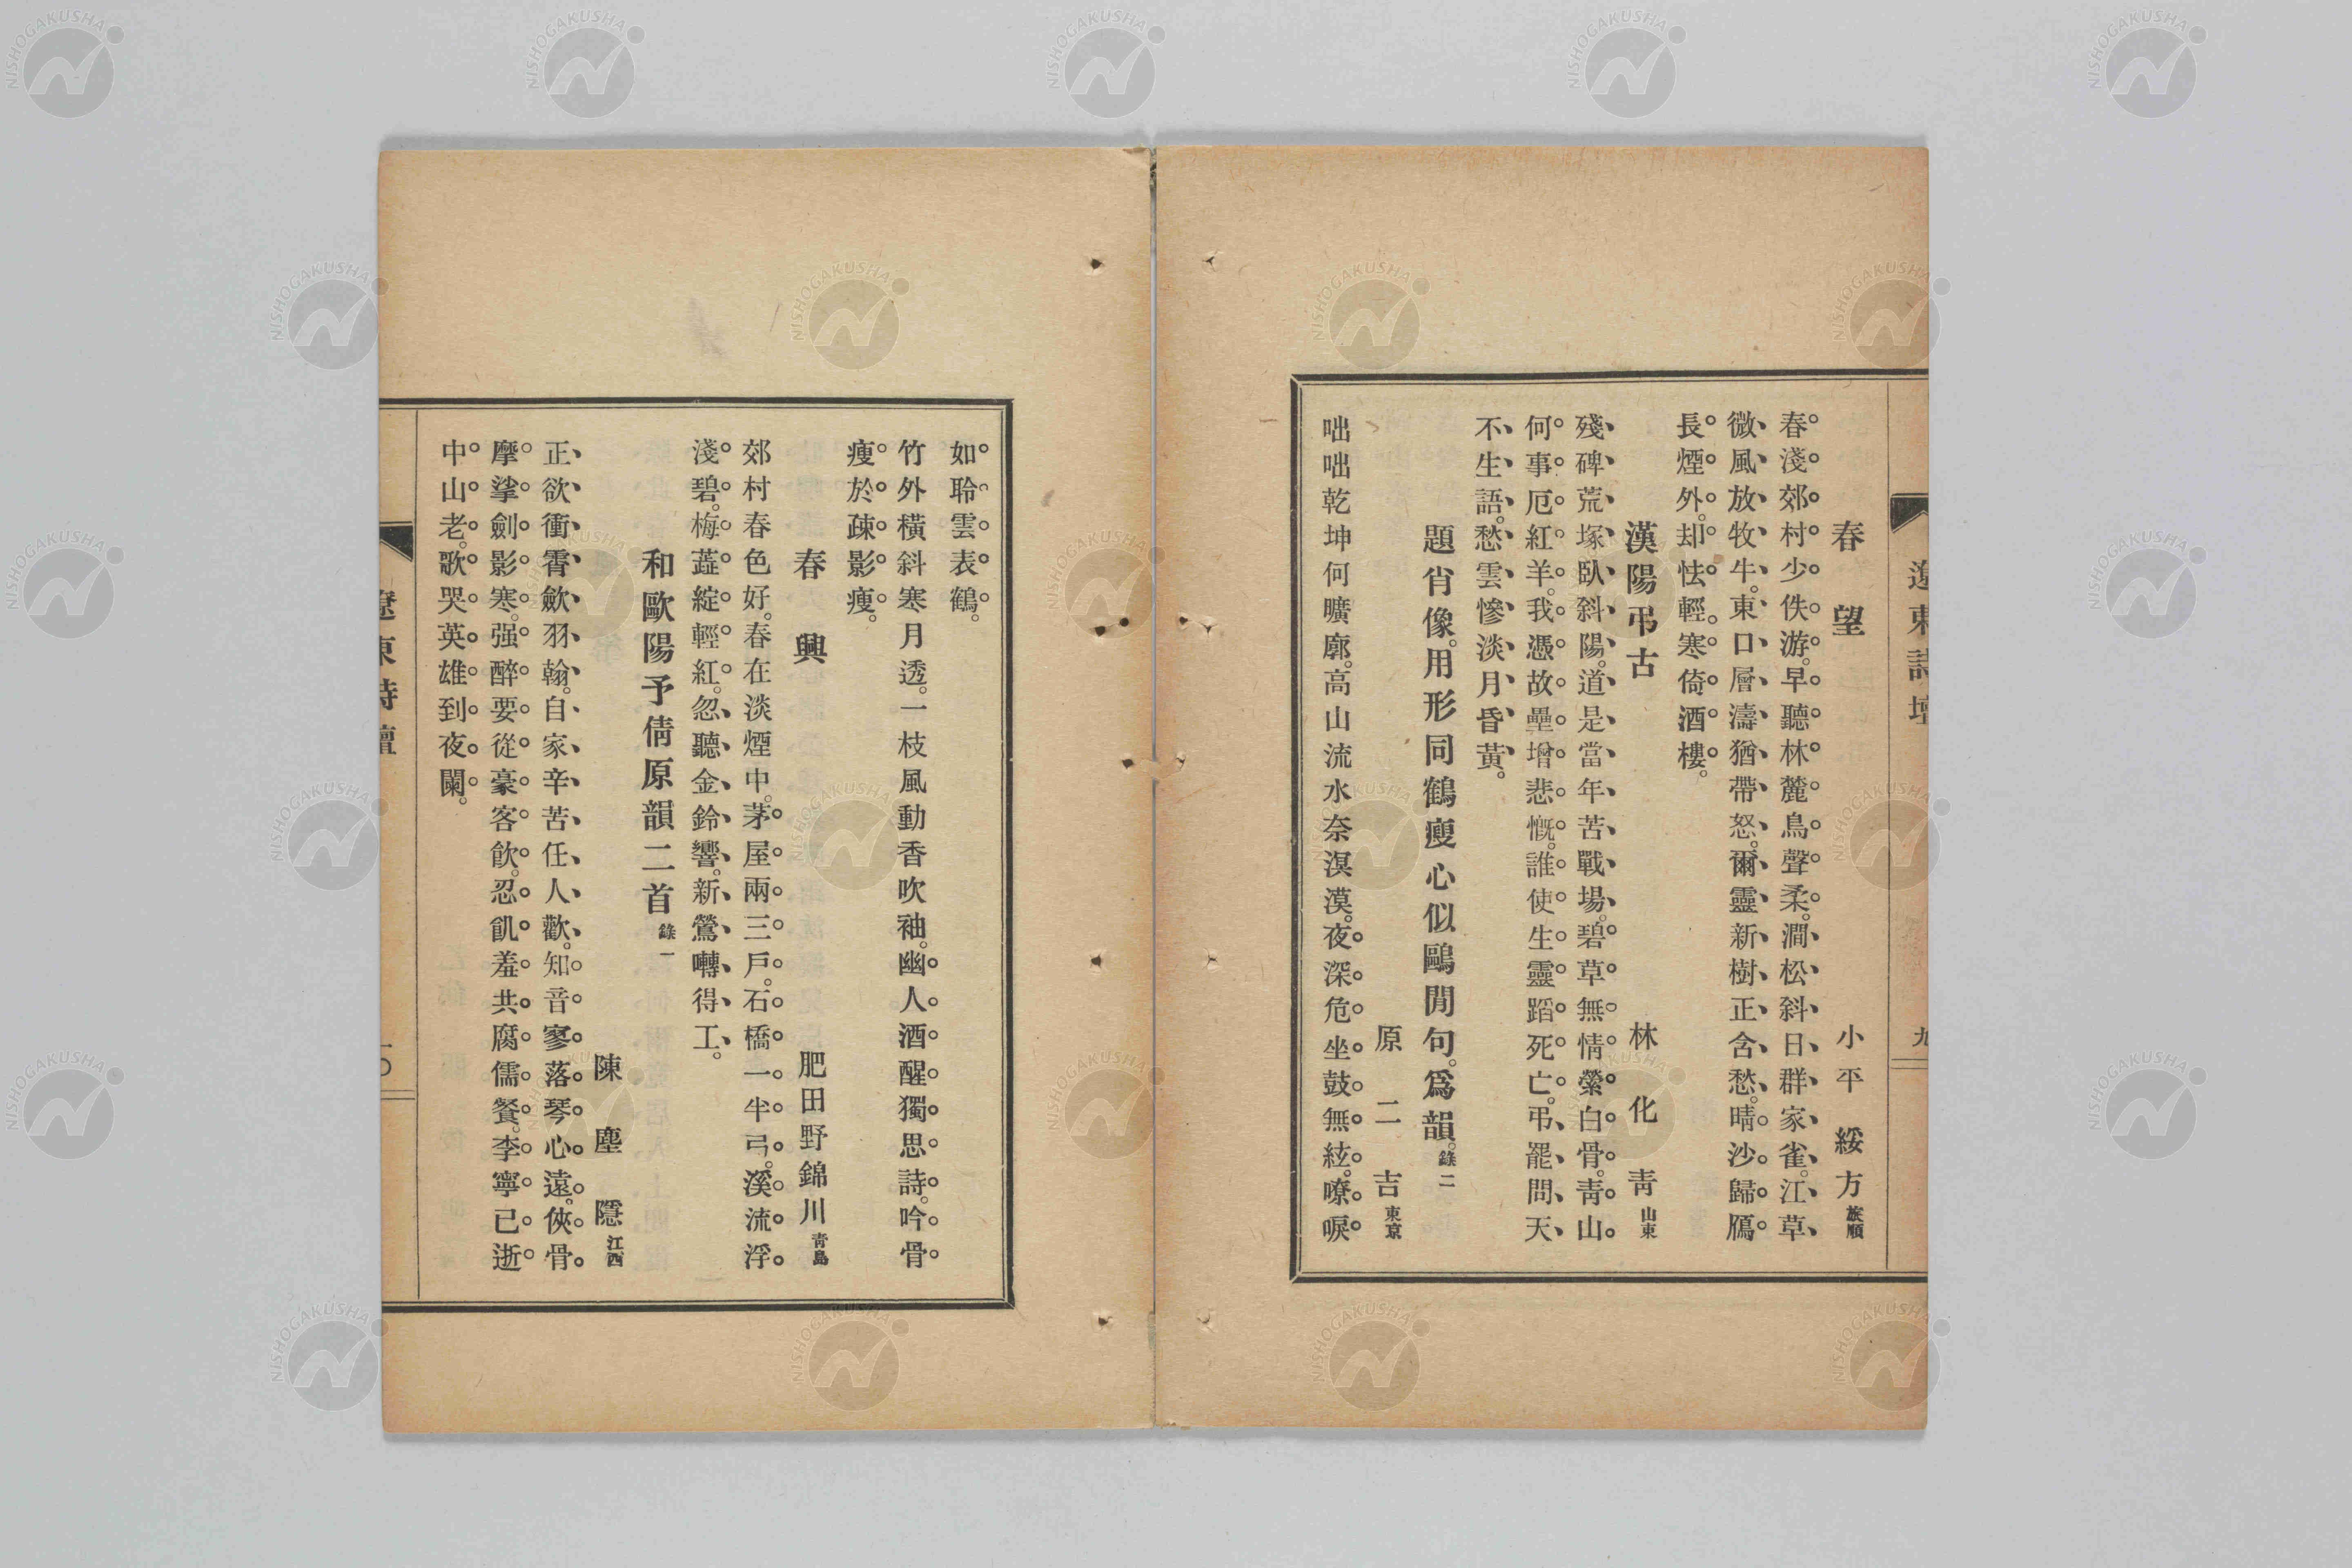 遼東詩壇
九
春望
小平綏方 旅順
春淺郊村少佚游。早聽林麓鳥聲柔。澗松斜日群家雀。江草
微風放牧牛。東口層濤猶帶怒。爾靈新樹正含愁。晴沙歸鴈
長煙外。却怯輕寒倚酒樓。
漢陽弔古
林化青 山東
殘碑荒塚臥斜陽。道是當年苦戰場。碧草無情縈白骨。靑山
何事厄紅羊。我憑故壘增悲慨。誰使生靈蹈死亡。弔罷問天
不生語。愁雲慘淡月昏黃。
題肖像。用形同鶴瘦心似鷗閒句。爲韻。錄二
原二吉 東京
咄咄乾坤何曠廓。高山流水奈溟漠。夜深危坐鼓無絃。嘹唳
如聆雲表鶴。
竹外橫斜寒月透。一枝風動香吹袖。幽人酒醒獨思詩。吟骨
瘦於疎影瘦。
春興
肥田野錦川 靑島
郊村春色好。春在淡煙中。茅屋兩三戶。石橋一半弓。溪流浮
淺碧。梅蕋綻輕紅。忽聽金鈴響。新鶯囀得工。
和歐陽予倩原韻二首 錄一
陳塵隱 江西
正欲衝霄歛羽翰。自家辛苦任人歡。知音寥落琴心遠。俠骨
摩挲劍影寒。强醉要從豪客飮。忍飢羞共腐儒餐。李寧已逝
中山老。歌哭英雄到夜闌。
遼東詩壇
一〇
NISHOGAKUSHA